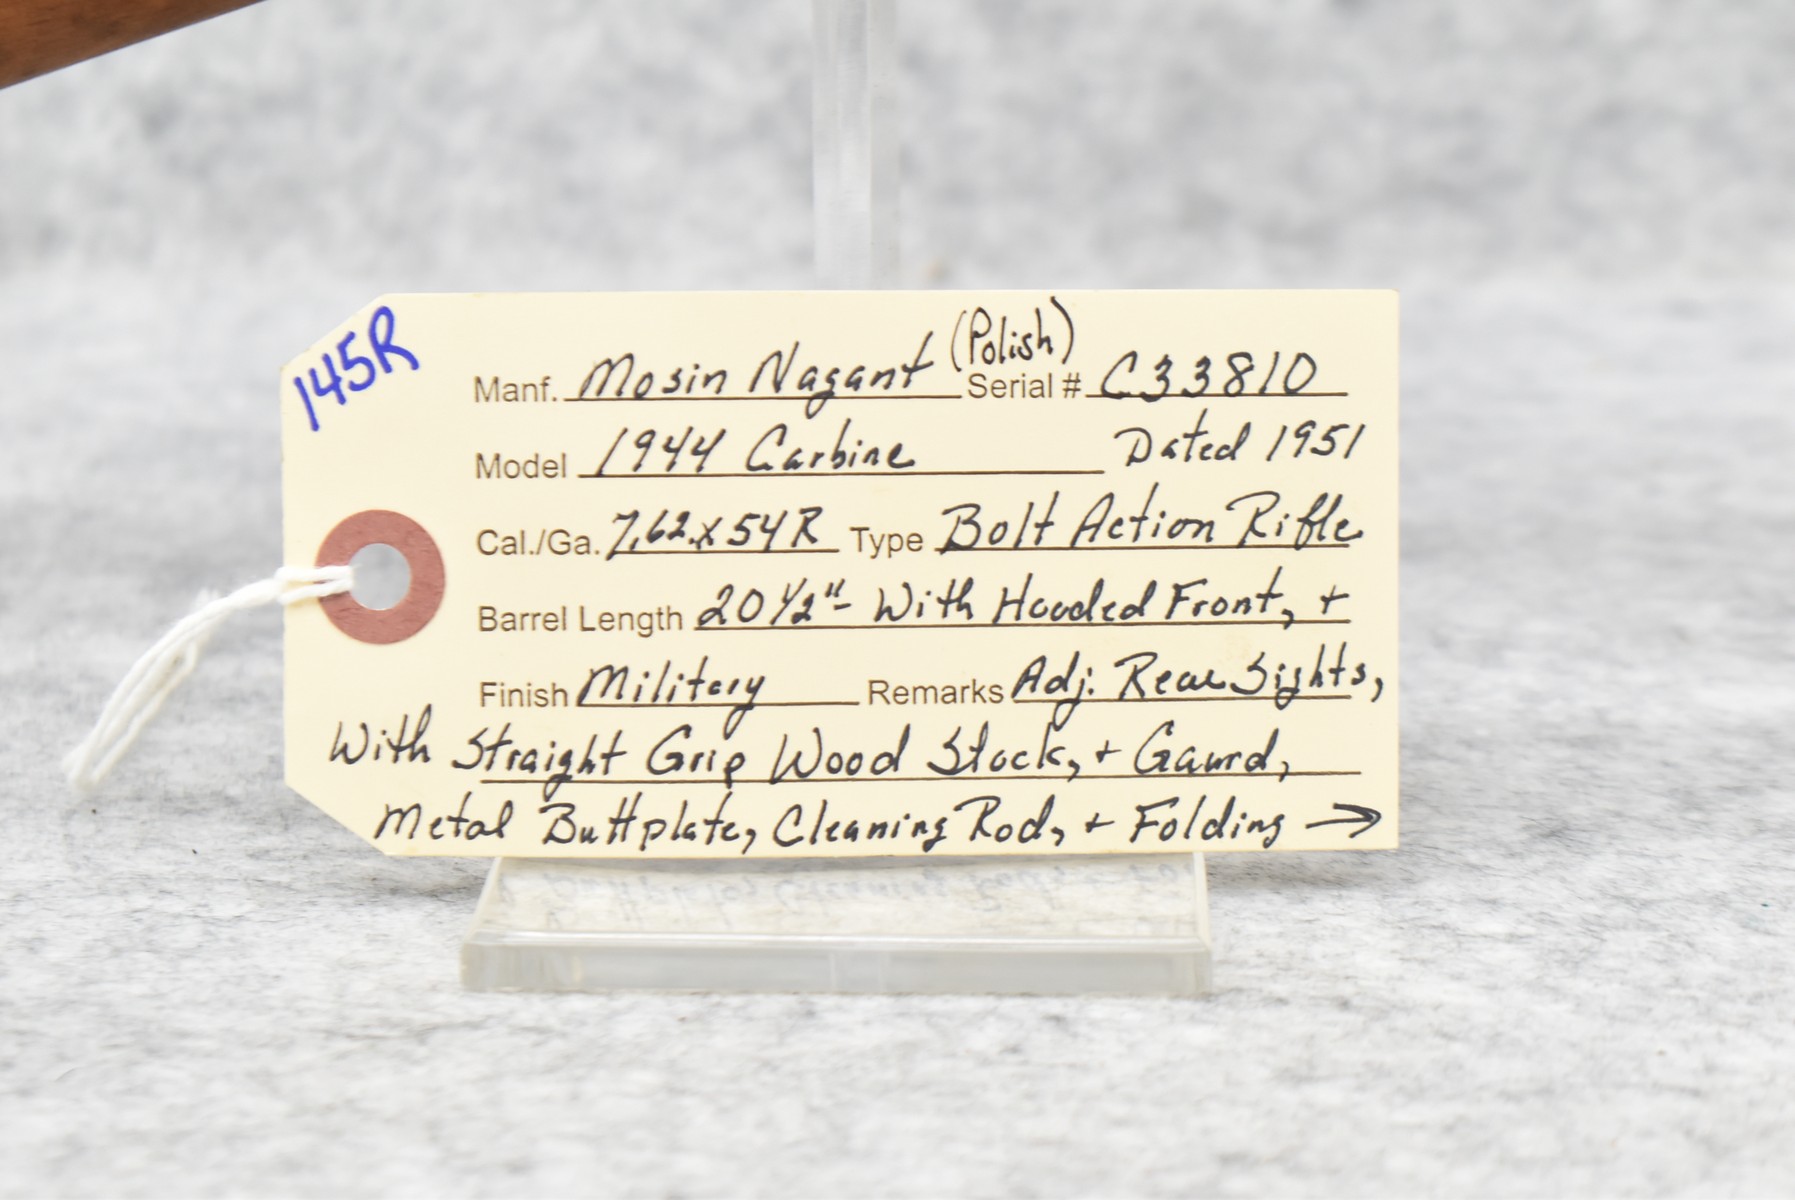 145R
(Polish)
Manf. Mosin Nagant Serial # C33810
Model 1944 Carbine Dated 1951
Cal./Ga. 7.62x54R Type Bolt Action Rifle
Barrel Length 20 1/2"- With Hooded Front, +
Finish Military Remarks Adj. Rear Sights,
With Straight Grip Wood Stock, + Gaurd,
Metal Buttplate, Cleaning Rod, + Folding →